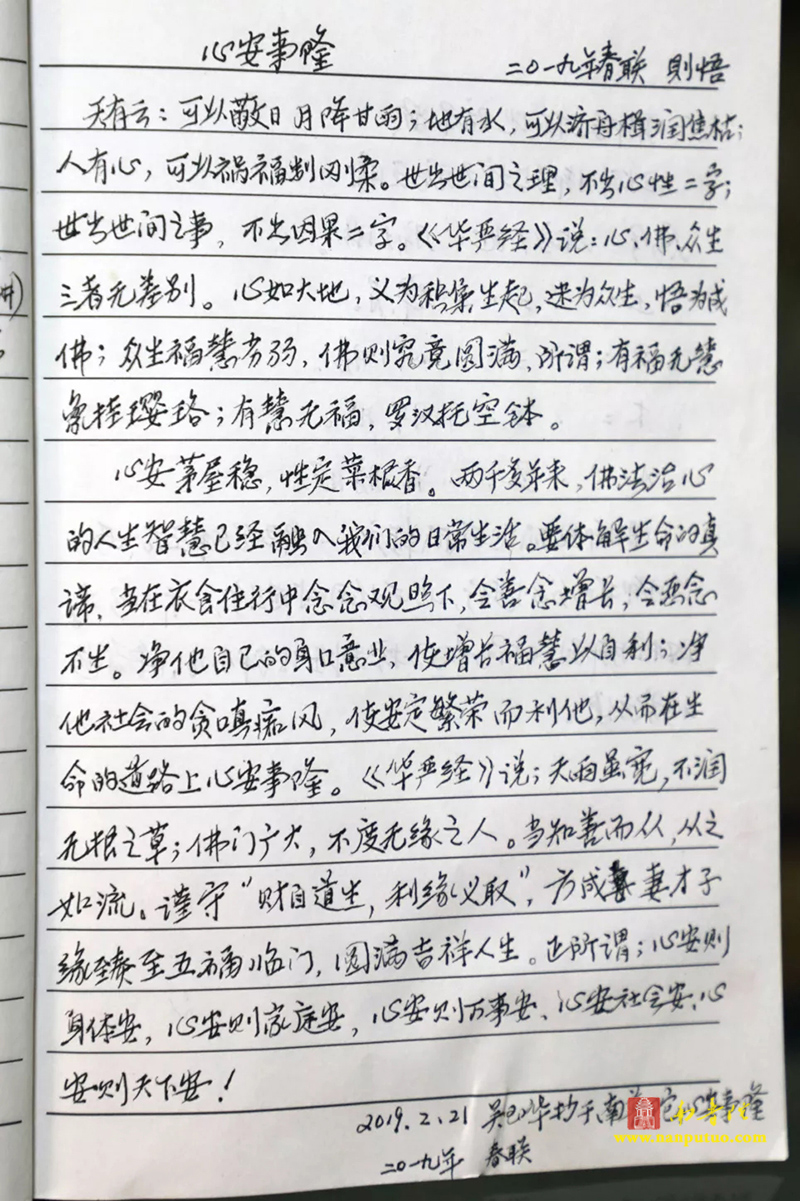 心安事隆
二〇一九年春联 则悟
天有云：可以蔽日月降甘雨；地有水，可以济舟楫润焦枯；
人有心，可以祸福别刚柔。世出世间之理，不出心性二字；
世出世间之事，不出因果二字。《华严经》说：心、佛、众生
三者无差别。心如大地，义为积集生起，迷为众生，悟为成
佛；众生福慧劣弱，佛则究竟圆满，所谓；有福无慧
象挂璎珞；有慧无福，罗汉托空钵。
心安茅屋稳，性定菜根香。两千多年来，佛法治心
的人生智慧已经融入我们的日常生活。要体解生命的真
谛，当在衣食住行中念念观照下，令善念增长，令恶念
不生。净化自己的身口意业，使增长福慧以自利；净
化社会的贪嗔痴风，使安定繁荣而利他，从而在生
命的道路上心安事隆。《华严经》说；天雨虽宽，不润
无根之草；佛门广大，不度无缘之人。当知善而从，从之
如流。谨守“财自道生，利缘义取”，方成妻才子
缘臻至五福临门，圆满吉祥人生。正所谓；心安则
身体安，心安则家庭安，心安则万事安、心安社会安、心
安则天下安！
2019.2.21 吴 华抄于南 心安事隆
二〇一九年 春联
www.nanputuo.com